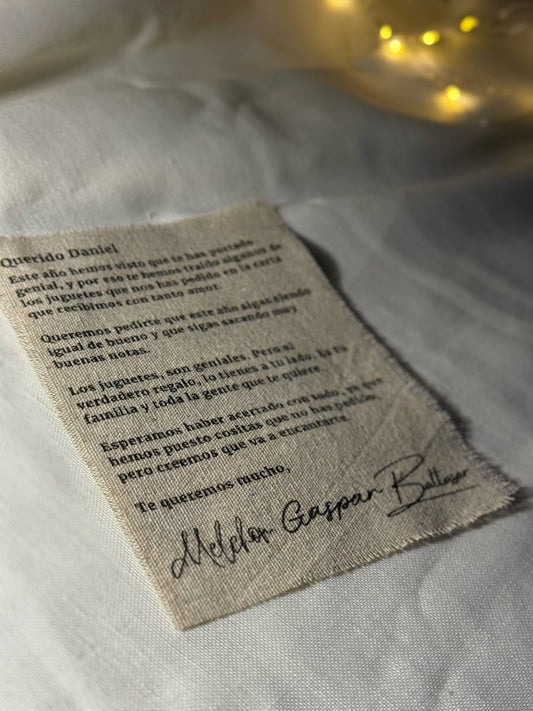 Querido Daniel
Este año hemos visto que te has portado
genial, y por eso te hemos traido algunos de
los juguetes que nos has pedido en la carta
que recibimos con tanto amor.
Queremos pedirte que este año sigas siendo
igual de bueno y que sigas sacando muy
buenas notas.
Los juguetes, son geniales. Pero si
verdadero regalo, lo tienes a tu lado. Es tu
familia y toda la gente que te quiere
Esperamos haber acertado con todo, ya que
hemos puesto cositas que no has pedido,
pero creemos que va a encantarte.
Te queremos mucho,
Melchor Gaspar Baltasar